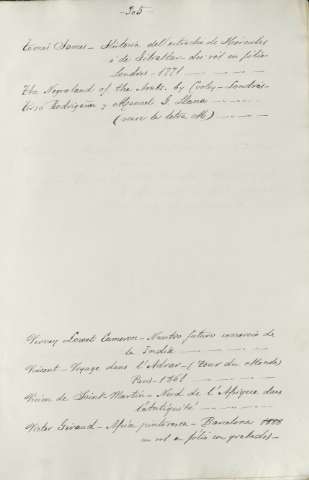 - 305 -
Tomas James - Historia del estrecho de Hércules
ó de Gibraltar - dos vol en folio
Londres - 1771 - - - -
The Negroland of the Arabs. by Cooley - Londres -
Tirso Rodrigañez y Manuel G. Llana - - -
(vease la letra M) - - - -
Verney Lovett Cameron - Nuestro futuro comercio de
la India - - - -
Vincent - Voyage dans l'Adrar - (Tour du Monde)
Paris - 1861 - - - -
Vivien de Saint-Martin - Nord de l'Afrique dans
l'antiquité - - - -
Victor Giraud - Africa pintoresca - Barcelona 1888
un vol en folio con grabados -